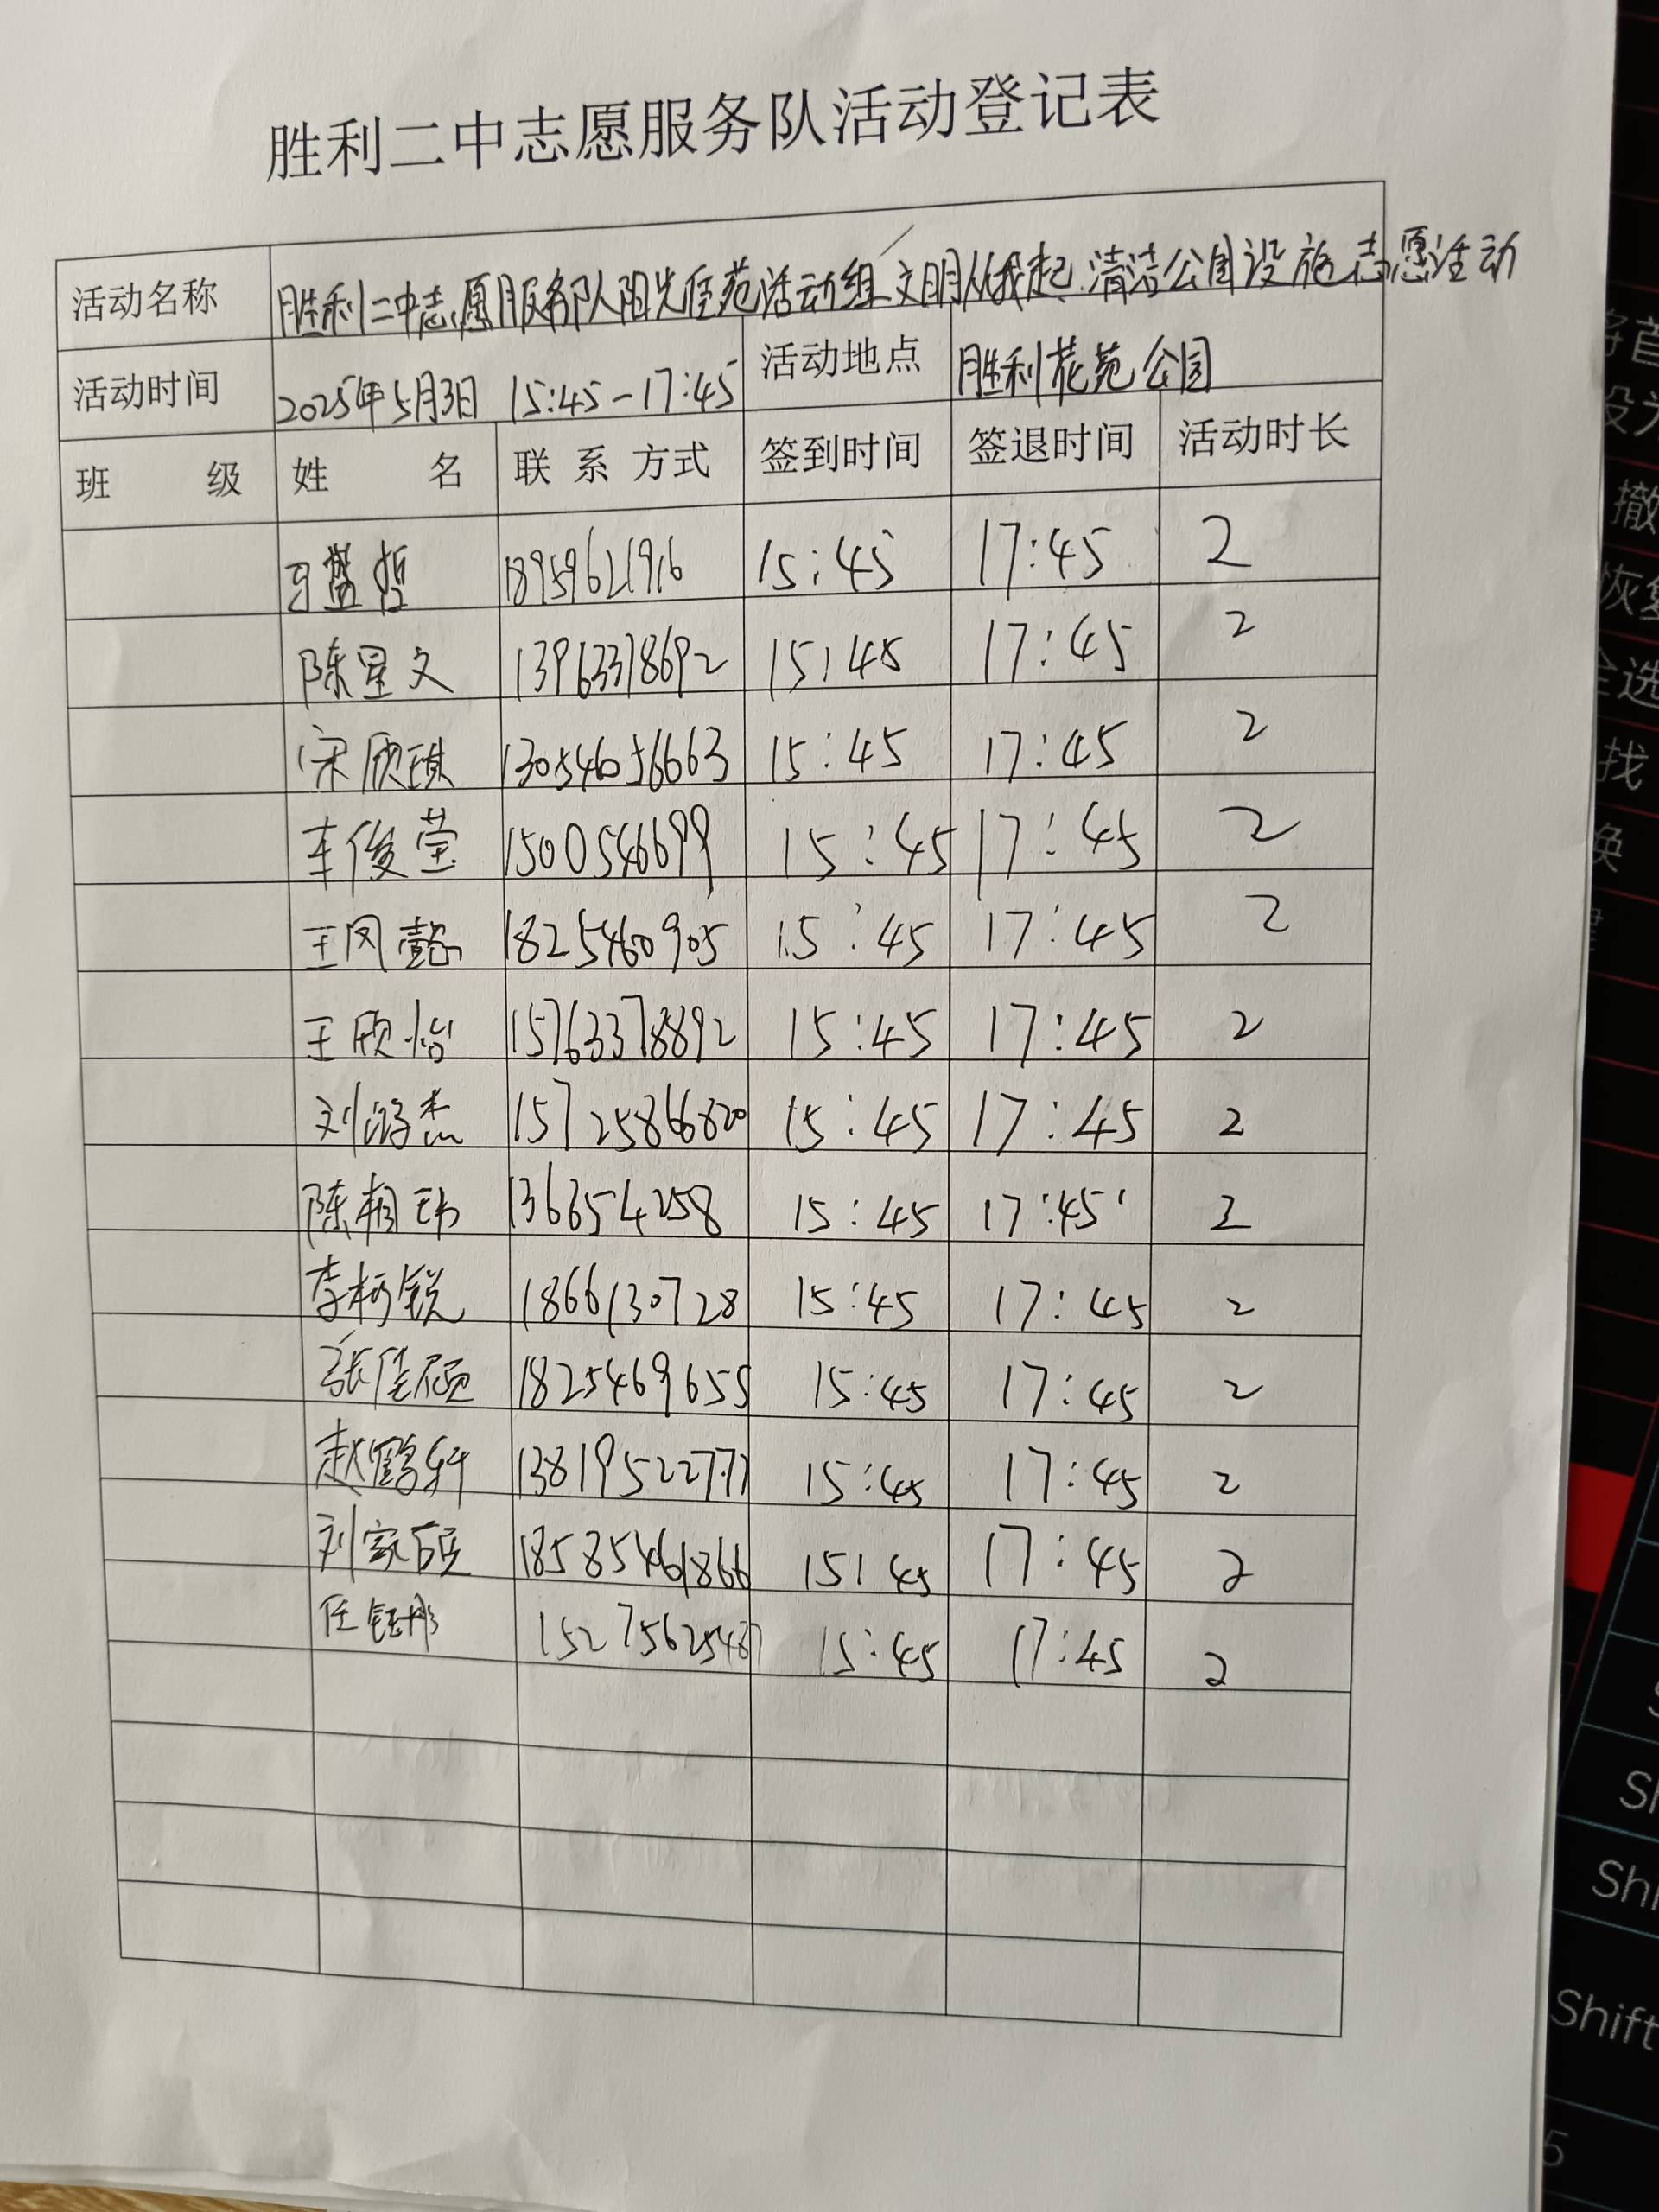 胜利二中志愿服务队活动登记表
活动名称 胜利二中志愿服务队阳光佳苑活动组文明从我起.清洁公园设施志愿活动
活动时间 2025年5月3日 15:45-17:45 活动地点 胜利花苑公园
班 级 姓 名 联系方式 签到时间 签退时间 活动时长
18959621916 15:45 17:45 2
陈星文 13963378692 15:45 17:45 2
宋欣琪 13054656663 15:45 17:45 2
车俊莹 1500546699 15:45 17:45 2
王凤懿 1825460905 15:45 17:45 2
王欣怡 15763378892 15:45 17:45 2
刘鸿杰 15725866820 15:45 17:45 2
陈相玮 136654258 15:45 17:45 2
李柯锐 1866130728 15:45 17:45 2
张佳硕 1825469655 15:45 17:45 2
赵鹤轩 13819522777 15:45 17:45 2
刘家硕 18585461866 15:45 17:45 2
任钰彤 15275625487 15:45 17:45 2
撤
全选
找
换
Shift
5